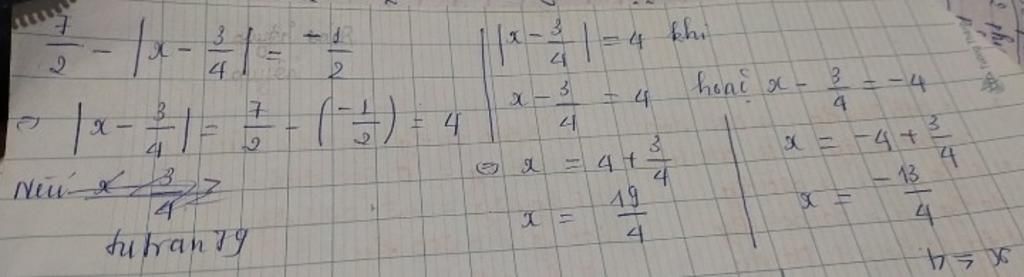 7/2 - |x - 3/4| = -1/2
⇔ |x - 3/4| = 7/2 - (-1/2) = 4
Nếu
tutran79
|x - 3/4| = 4 khi
x - 3/4 = 4 hoặc x - 3/4 = -4
⇔ x = 4 + 3/4
x = 19/4
x = -4 + 3/4
x = -13/4